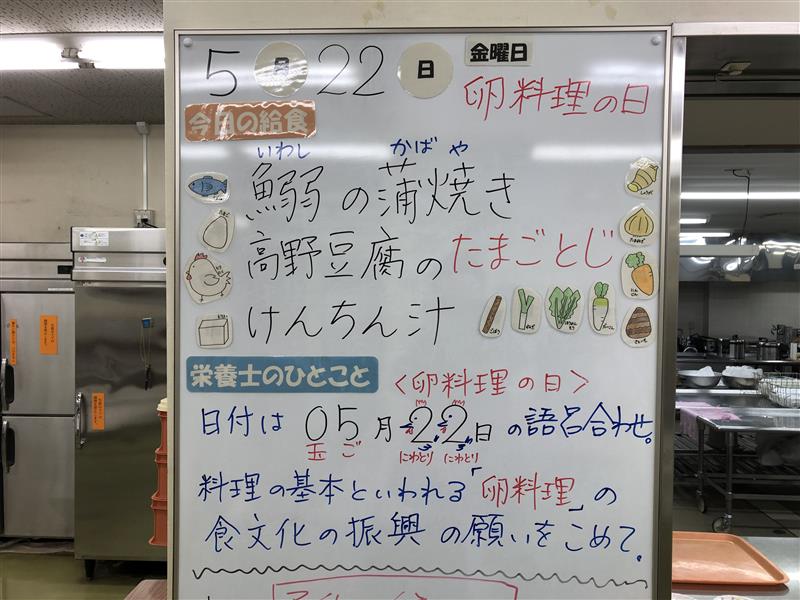 5月22日 金曜日
卵料理の日
今日の給食
いわし かばや
鰯の蒲焼き
高野豆腐のたまごとじ
けんちん汁
栄養士のひとこと
<卵料理の日>
日付は 05月22日の語呂合わせ。
玉ご にわとり にわとり
料理の基本といわれる「卵料理」の
食文化の振興の願いをこめて。